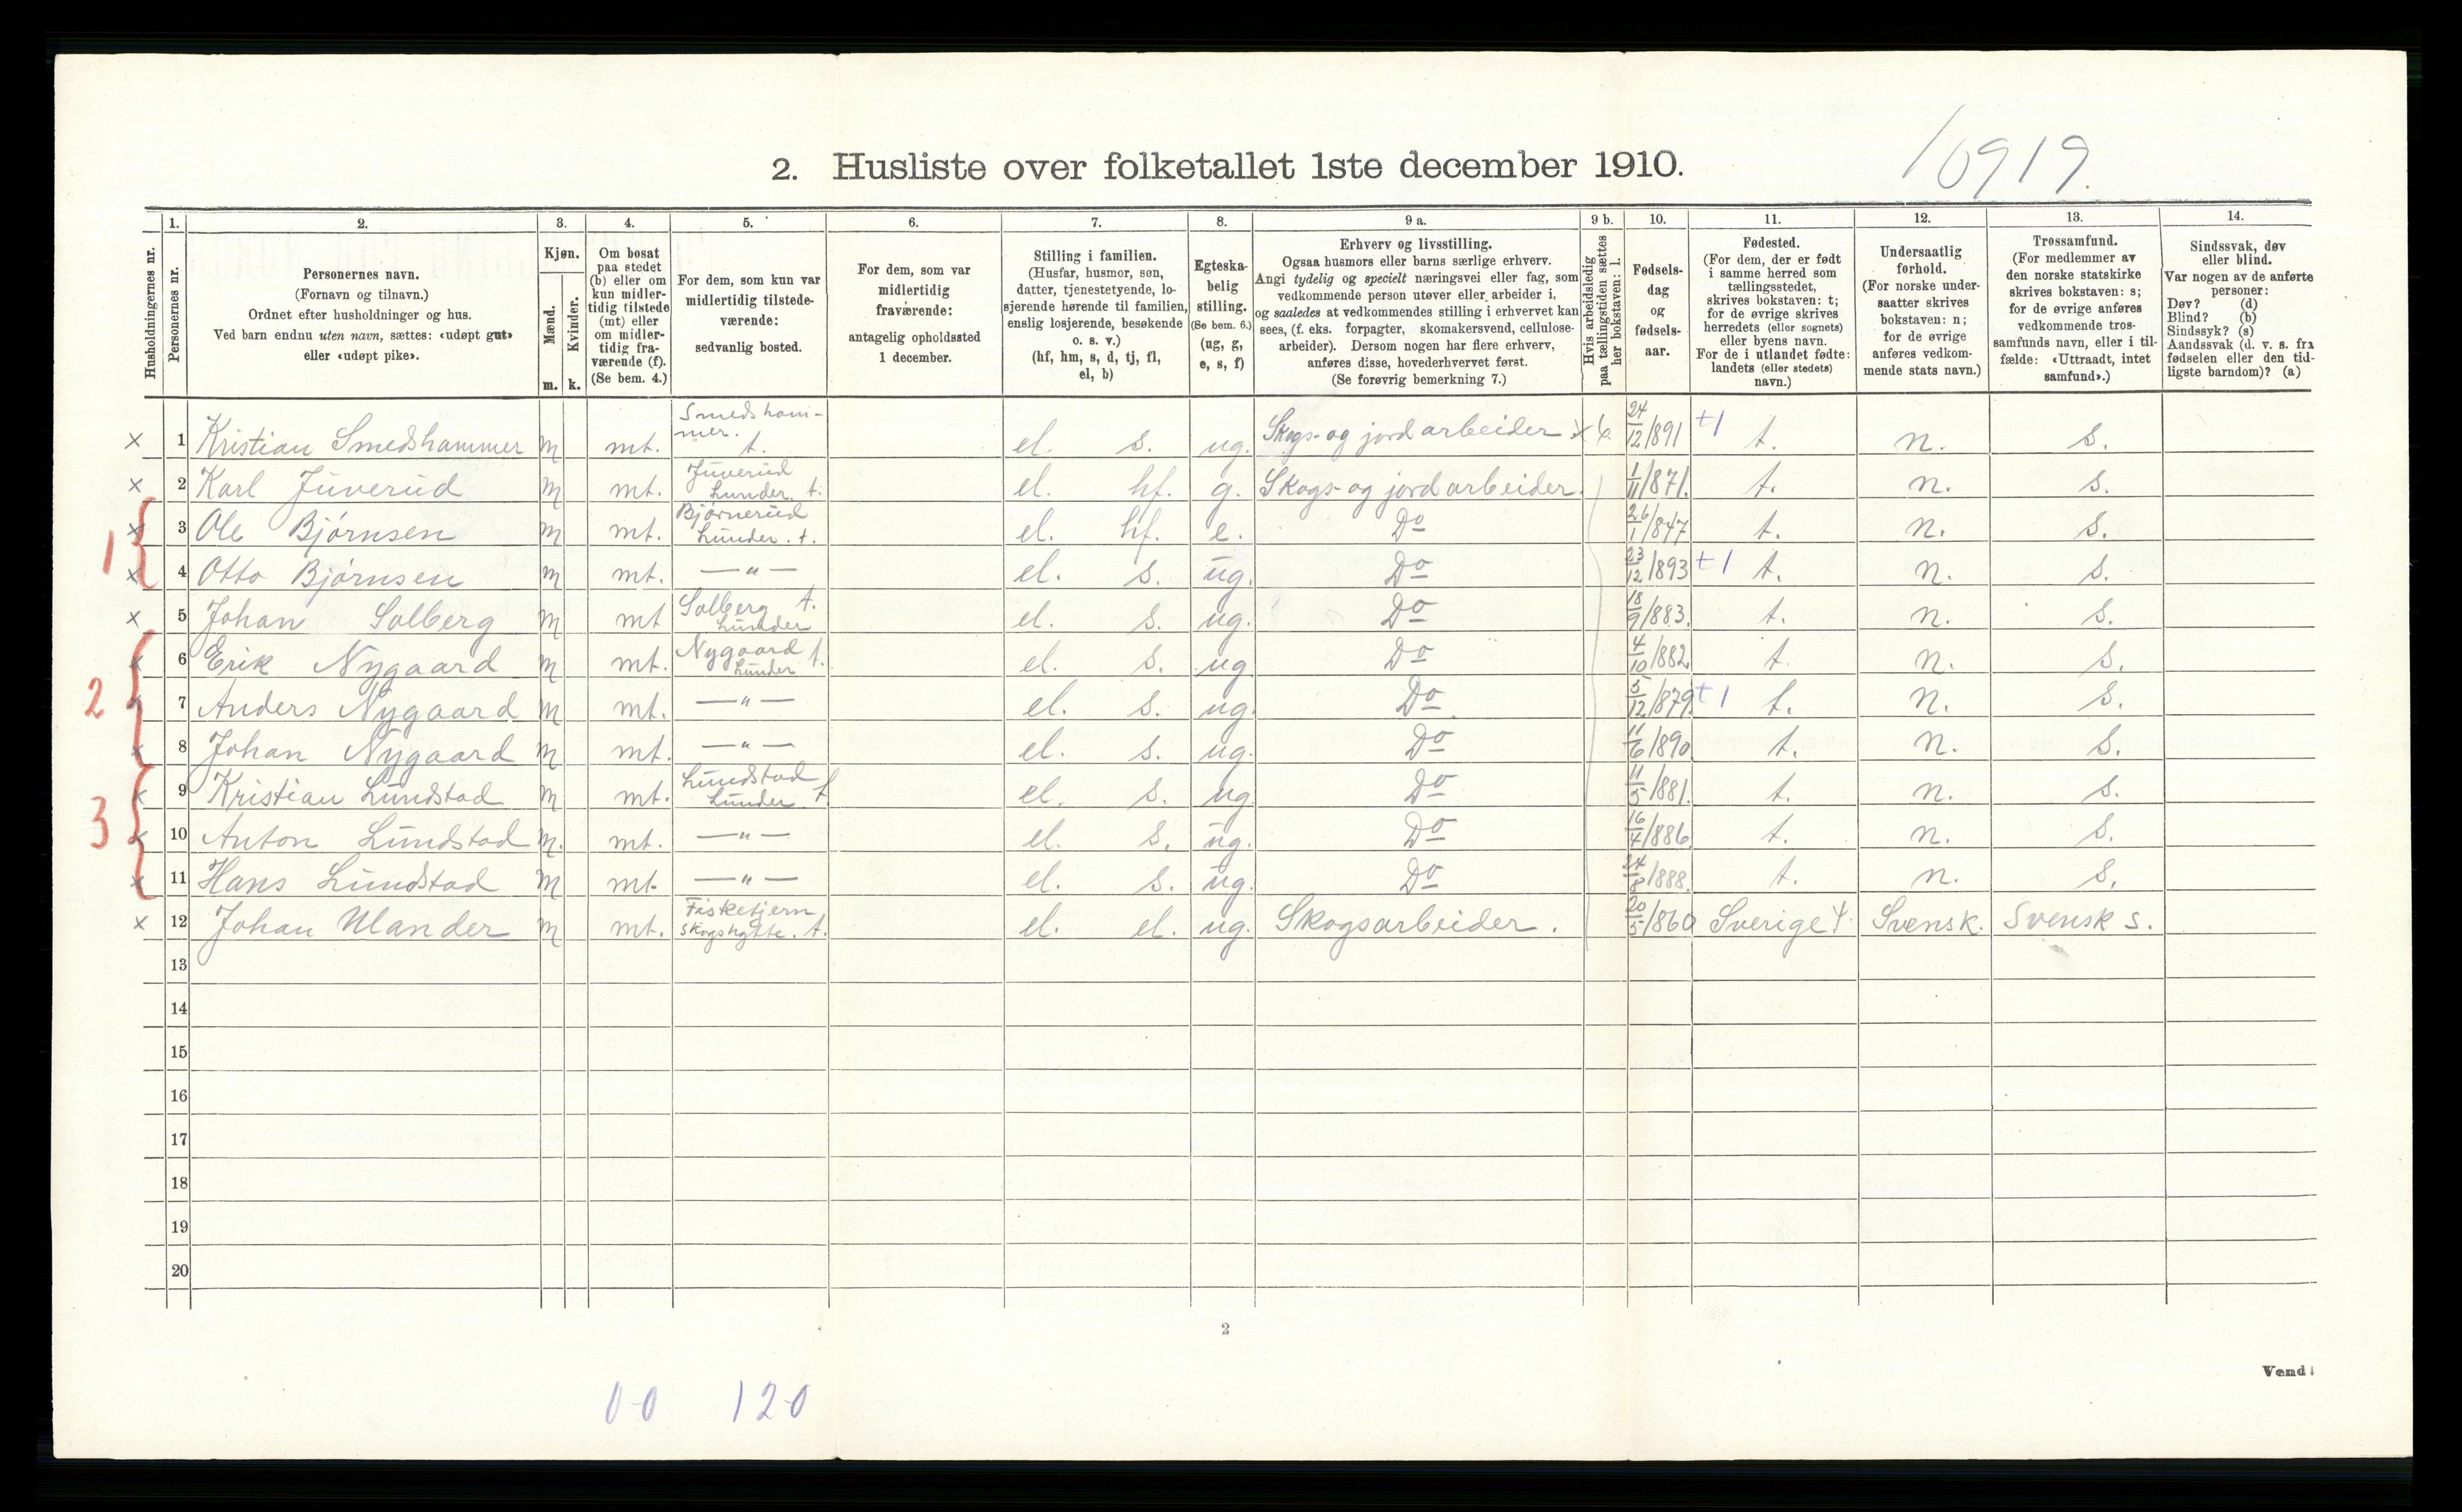 10919.
2. Husliste over folketallet 1ste december 1910.
1. 2. 3. 4. 5. 6. 7. 8. 9 a. 9 b. 10. 11. 12. 13. 14.
Husholdningernes nr.
Personernes nr.
Personernes navn.
(Fornavn og tilnavn.)
Ordnet efter husholdninger og hus.
Ved barn endnu uten navn, sættes: «udøpt gut»
eller «udøpt pike».
Kjøn.
Mænd.
m.
Kvinder.
k.
Om bosat
paa stedet
(b) eller om
kun midler-
tidig tilstede
(mt) eller
om midler-
tidig fra-
værende (f).
(Se bem. 4.)
For dem, som kun var
midlertidig tilstede-
værende:
sedvanlig bosted.
For dem, som var
midlertidig
fraværende:
antagelig opholdssted
1 december.
Stilling i familien.
(Husfar, husmor, søn,
datter, tjenestetyende, lo-
sjerende hørende til familien,
enslig losjerende, besøkende
o. s. v.)
(hf, hm, s, d, tj, fl,
el, b)
Egteska-
belig
stilling.
(Se bem. 6.)
(ug, g,
e, s, f)
Erhverv og livsstilling.
Ogsaa husmors eller barns særlige erhverv.
Angi tydelig og specielt næringsvei eller fag, som
vedkommende person utøver eller arbeider i,
og saaledes at vedkommendes stilling i erhvervet kan
sees, (f. eks. forpagter, skomakersvend, cellulose-
arbeider). Dersom nogen har flere erhverv,
anføres disse, hovederhvervet først.
(Se forøvrig bemerkning 7.)
Hvis arbeidsledig
paa tællingstiden sættes
her bokstaven: l.
Fødsels-
dag
og
fødsels-
aar.
Fødested.
(For dem, der er født
i samme herred som
tællingsstedet,
skrives bokstaven: t;
for de øvrige skrives
herredets (eller sognets)
eller byens navn.
For de i utlandet fødte:
landets (eller stedets)
navn.)
Undersaatlig
forhold.
(For norske under-
saatter skrives
bokstaven: n;
for de øvrige
anføres vedkom-
mende stats navn.)
Trossamfund.
(For medlemmer av
den norske statskirke
skrives bokstaven: s;
for de øvrige anføres
vedkommende tros-
samfunds navn, eller i til-
fælde: «Uttraadt, intet
samfund».)
Sindssvak, døv
eller blind.
Var nogen av de anførte
personer:
Døv? (d)
Blind? (b)
Sindssyk? (s)
Aandssvak (d. v. s. fra
fødselen eller den tid-
ligste barndom)? (a)
x 1 Kristian Smedshammer m mt. Smedsham-mer. t. el. s. ug. Skogs- og jordarbeider 24/12/891 +1 t. n. s.
x 2 Karl Juverud m mt. Juverud Lunder. t. el. hf. g. Skogs- og jordarbeider. 1/11/871. t. n. s.
x 3 Ole Bjørnsen m mt. Bjørnerud Lunder. t. el. hf. e. Do 26/1/847 t. n. s.
1
x 4 Otto Bjørnsen m mt. — " — el. s. ug. Do 23/12/893 +1 t. n. s.
x 5 Johan Solberg m mt Solberg t. Lunder el. s. ug. Do 18/9/883. t. n. s.
x 6 Erik Nygaard m mt. Nygaard t. Lunder el. s. ug Do 4/10/882 t. n. s.
2
x 7 Anders Nygaard m mt. — " — el. s. ug. Do 5/12/879 +1 t. n. s.
x 8 Johan Nygaard m mt. — " — el. s. ug. Do 11/6/890 t. n. s.
x 9 Kristian Lundstad m mt. Lundstad Lunder t el. s. ug Do 11/5/881. t. n. s.
3
x 10 Anton Lundstad m. mt. — " — el. s. ug. Do 16/4/886 t. n. s.
x 11 Hans Lundstad m mt. — " — el. s. ug. Do 24/8/888. t. n. s.
x 12 Johan Ulander m mt. Fisketjern skogshytte. t. el. el. ug. Skogsarbeider. 20/5/860 Sverige Svensk. Svensk s.
13
14
15
16
17
18
19
20
2
Vend!
0-0 12-0